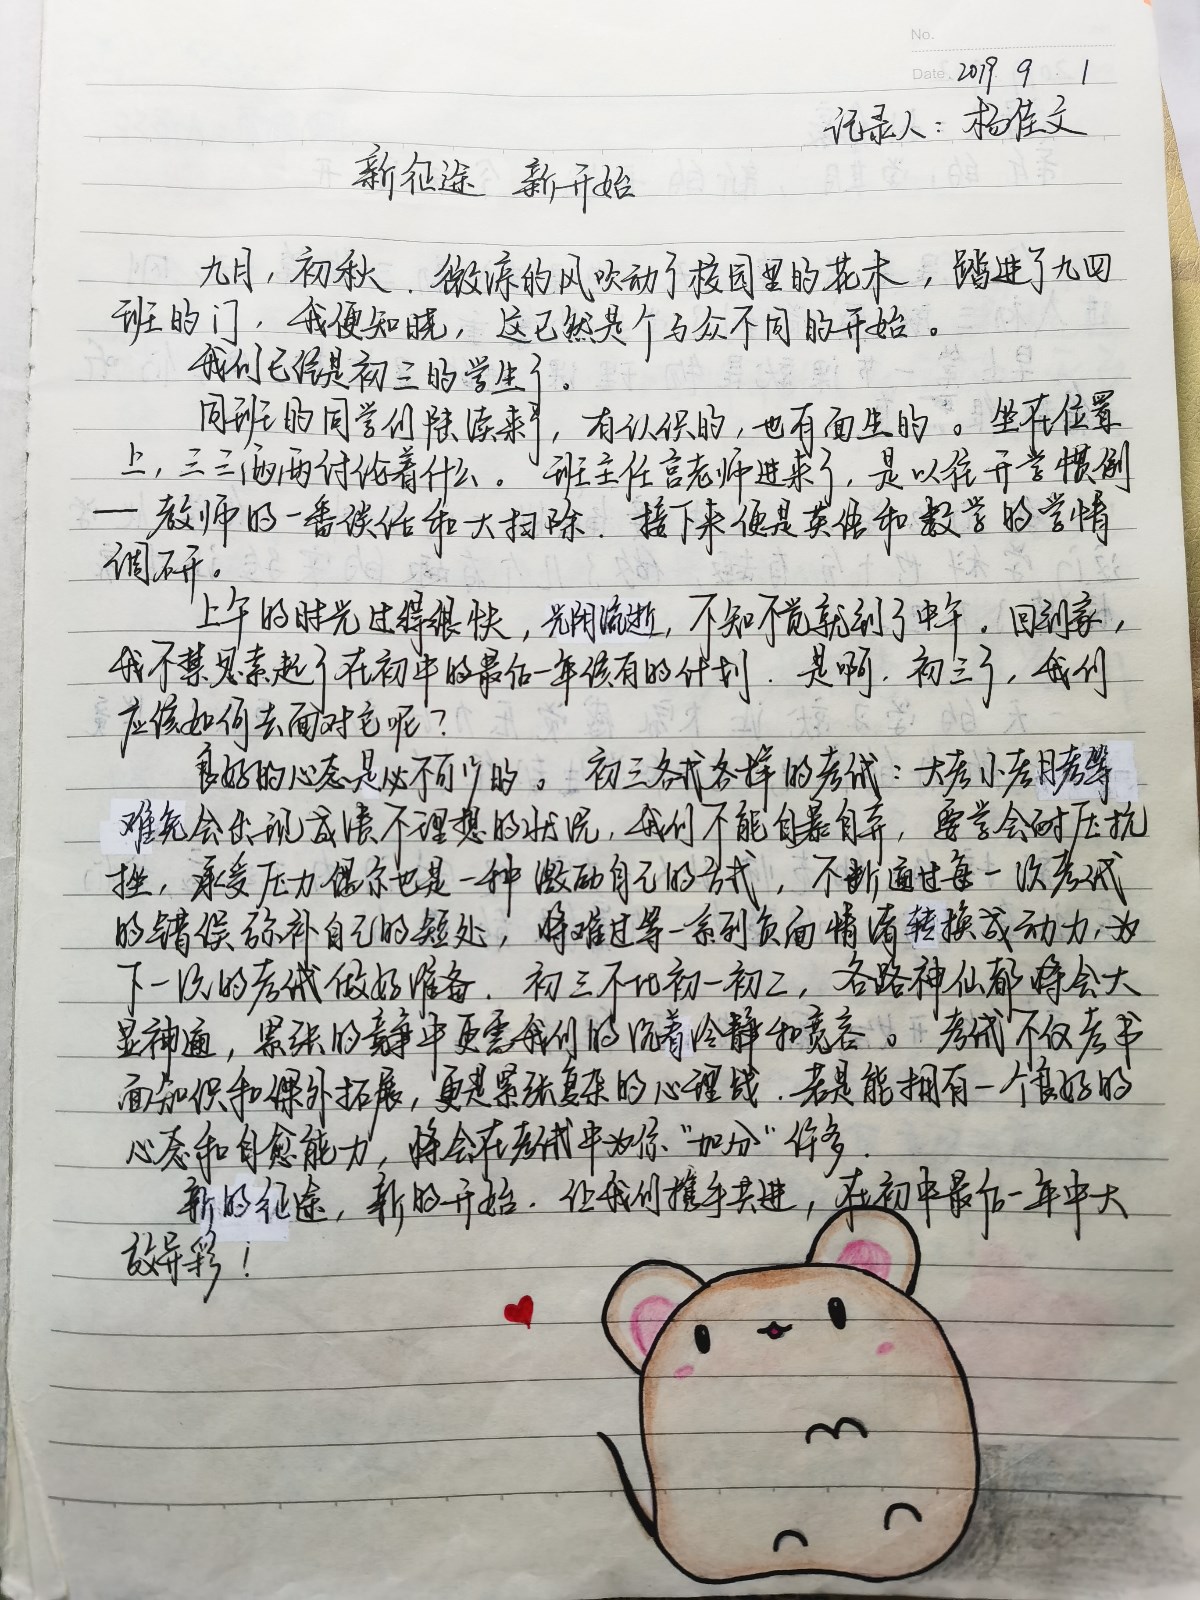 No.
Date 2019 9 1
记录人：杨佳文
新征途 新开始
九月，初秋．微凉的风吹动了校园里的花木，踏进了九四
班的门，我便知晓，这已然是个与众不同的开始。
我们已经是初三的学生了。
同班的同学们陆续来到，有认识的，也有面生的。坐在位置
上，三三两两讨论着什么。班主任宫老师进来了，是以往开学惯例
— 教师的一番谈话和大扫除．接下来便是英语和数学的学情
调研。
上午的时光过得很快，光阴流逝，不知不觉就到了中午．回到家，
我不禁思索起了在初中的最后一年该有的计划．是啊，初三了，我们
应该如何去面对它呢？
良好的心态是必不可少的。初三各式各样的考试：大考小考月考等
难免会出现成绩不理想的状况，我们不能自暴自弃，要学会耐压抗
挫，承受压力偶尔也是一种激励自己的方式，不断通过每一次考试
的错误弥补自己的短处，将难过等一系列负面情绪转换成动力，为
下一次的考试做好准备．初三不比初一初二，各路神仙都将会大
显神通，紧张的竞争中更需我们的沉着冷静和宽容。考试不仅考书
面知识和课外拓展，更是紧张复杂的心理战．若是能拥有一个良好的
心态和自愈能力，将会在考试中为你“加分”许多．
新的征途，新的开始．让我们携手共进，在初中最后一年中大
放异彩！